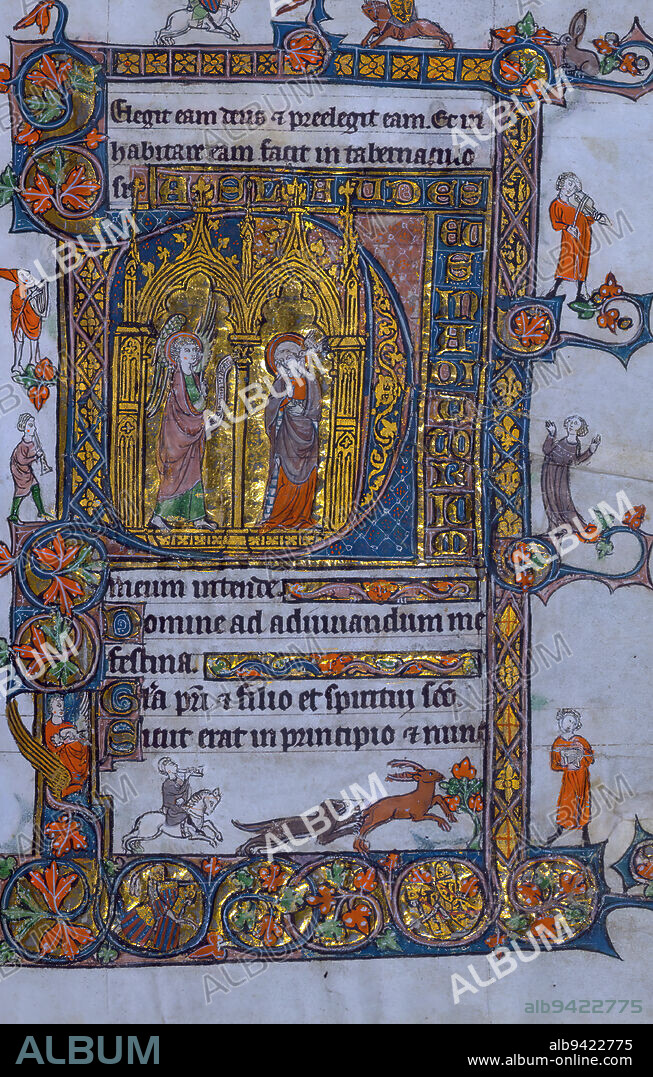 Elegit eam deus ⁊ preelegit eam. Et in
habitare eam facit in tabernaculo
AS LAUDES
D
meum intende.
Domine ad adiuuandum me
festina.
Gła pr̄i ⁊ filio et spiritui sc̄o
Sicut erat in principio ⁊ nunc
ALBUM
alb9422775
ALBUM
alb9422775
www.album-online.com